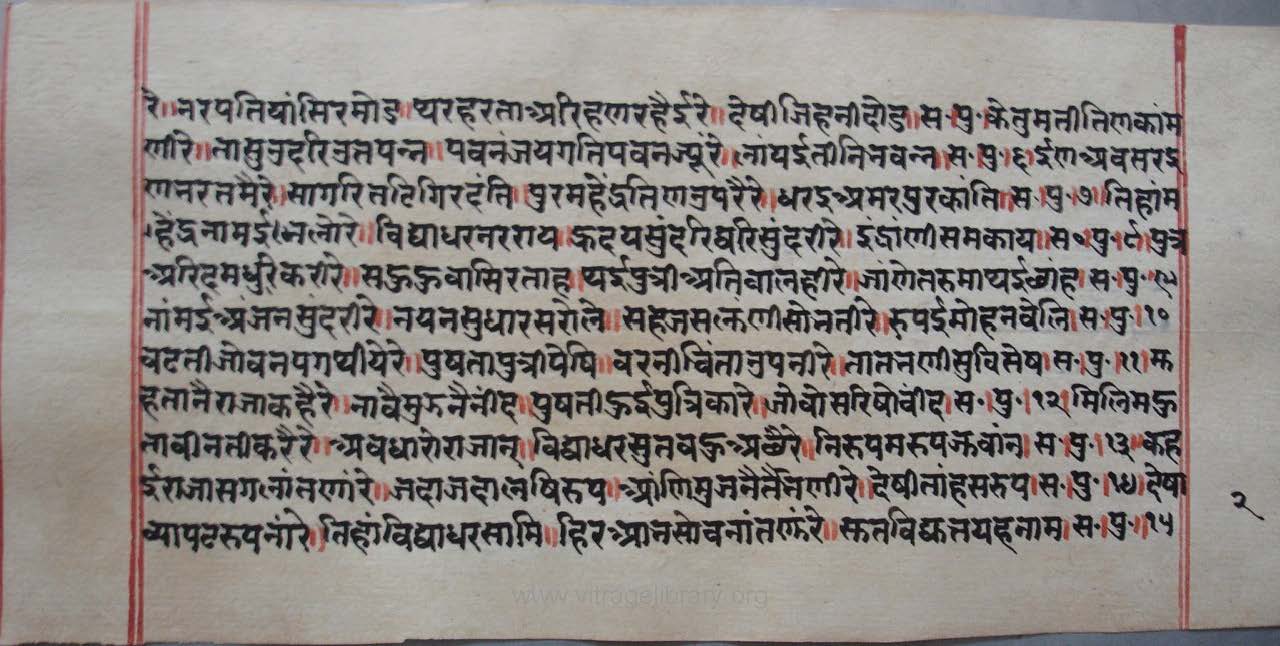 रे॥नरपतियांसिरमोड॥प्यरहरताअरिहणरहैईरे॥देषीजिहनीदोड॥स॰पु॰केतुमतीतिणकांम
णीरे॥तासुव्रदरिव्रतपन्न॥पवनंजयगतिपवनज्यूंरे॥नांयईतीनिनवन्न॥स॰पु॰६॥ईणअवसरइ
णनरतमैंरे॥सागरितटिगिरदंति॥पुरमहेंद्रतिणनपरैरे॥धरइअमरपुरकांति॥स॰पु॰७॥तिहांम
हेंद्रनामईनलोरे॥विद्याधरनरराय॥ह्रदयसुंदरिघरिसुंदरीरे॥इंद्राणीसमकाय॥स॰पु॰८॥पुत्र
अरिदमधुरिकरीरे॥सऊऊवासिरताह॥प्यईपुत्रीअतिवालहीरे॥जांणेतरुमाप्यईछांह॥स॰पु॰९॥
नांमईअंजनसुंदरीरे॥नयनसुधारसरेलि॥सहजसलक्षणीसोनतीरे॥रुपईमोहनवेलि॥स॰पु॰१०
चटतीजोवनपगथीयेरे॥पुषतापुत्रीपेषि॥वरनीचिंतानपनीरे॥तातनणीसुविसेष॥स॰पु॰११॥म
हतानैराजाकहैरे॥नावैमुऊनैनींद॥पुषतीऊईपुत्रिकारे॥जोवोसरिषोवींद॥स॰पु॰१२॥मिलिमऊ
तावीनतीकरैरे॥अवधारोराजान॥विद्याधरसुतवऊअछैरे॥निरुपमरुपऊवांन॥स॰पु॰१३॥कह
ईराजासगलांतणांरे॥जदाजदालेषिरुप॥आंणिमुजनैतेंनणीरे॥देषीतांहसरुप॥स॰पु॰१४॥देषा
व्यापटरुपनांरे॥तिहांविद्याधरसामि॥हिरआनसोवनांतणेंरे॥सुतविद्युतयहनाम॥स॰पु॰॥१५
२
www.vitragelibrary.org